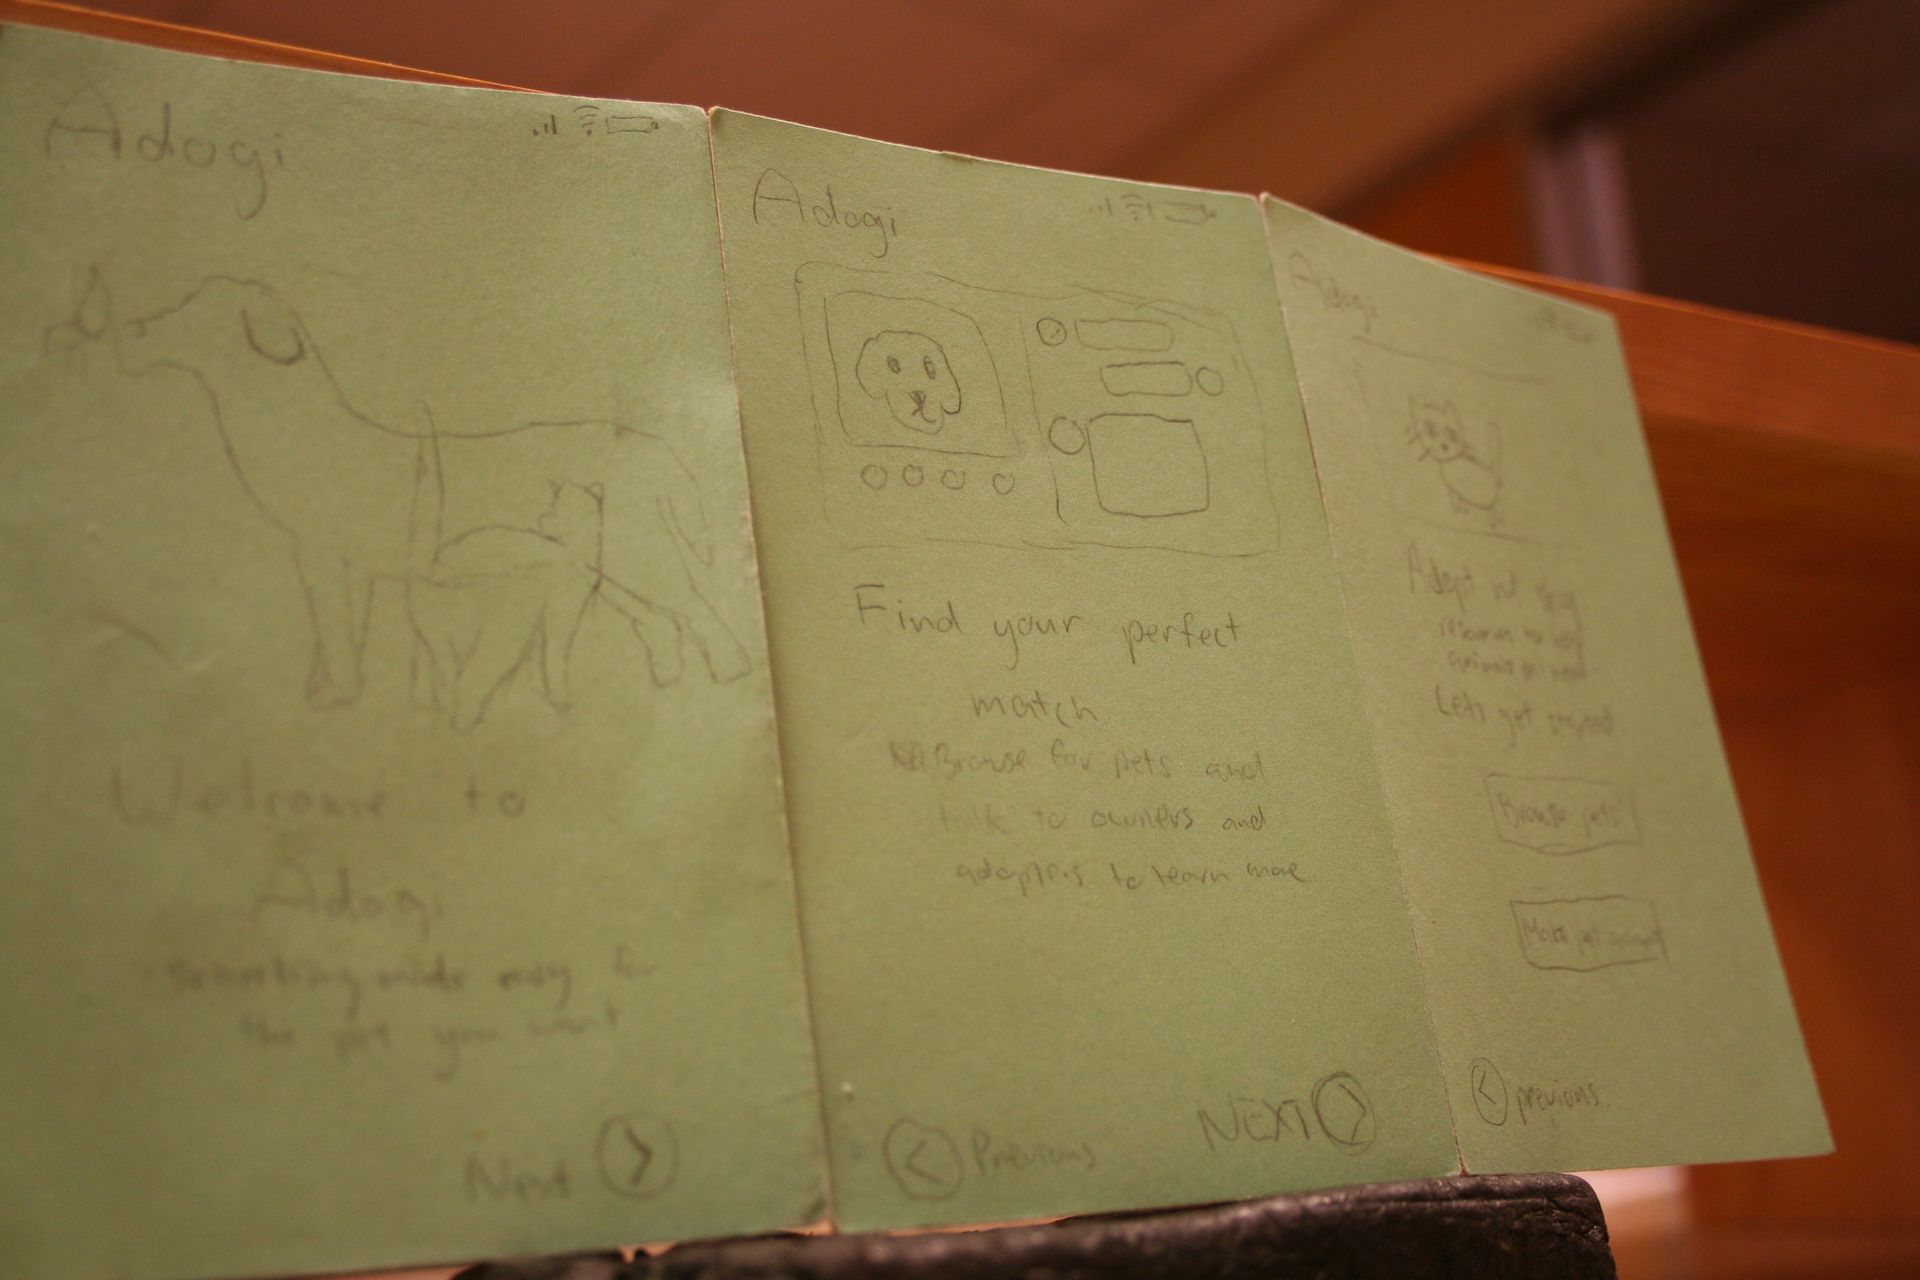 Adogi
Welcome to
Adogi
something made easy for
the pet you want
Next
Adogi
Find your perfect
match
Browse for pets and
talk to owners and
adopters to learn more
Previous
NEXT
Adogi
Adopt not
animals in need
Lets get
Browse pets
Make pet
previous